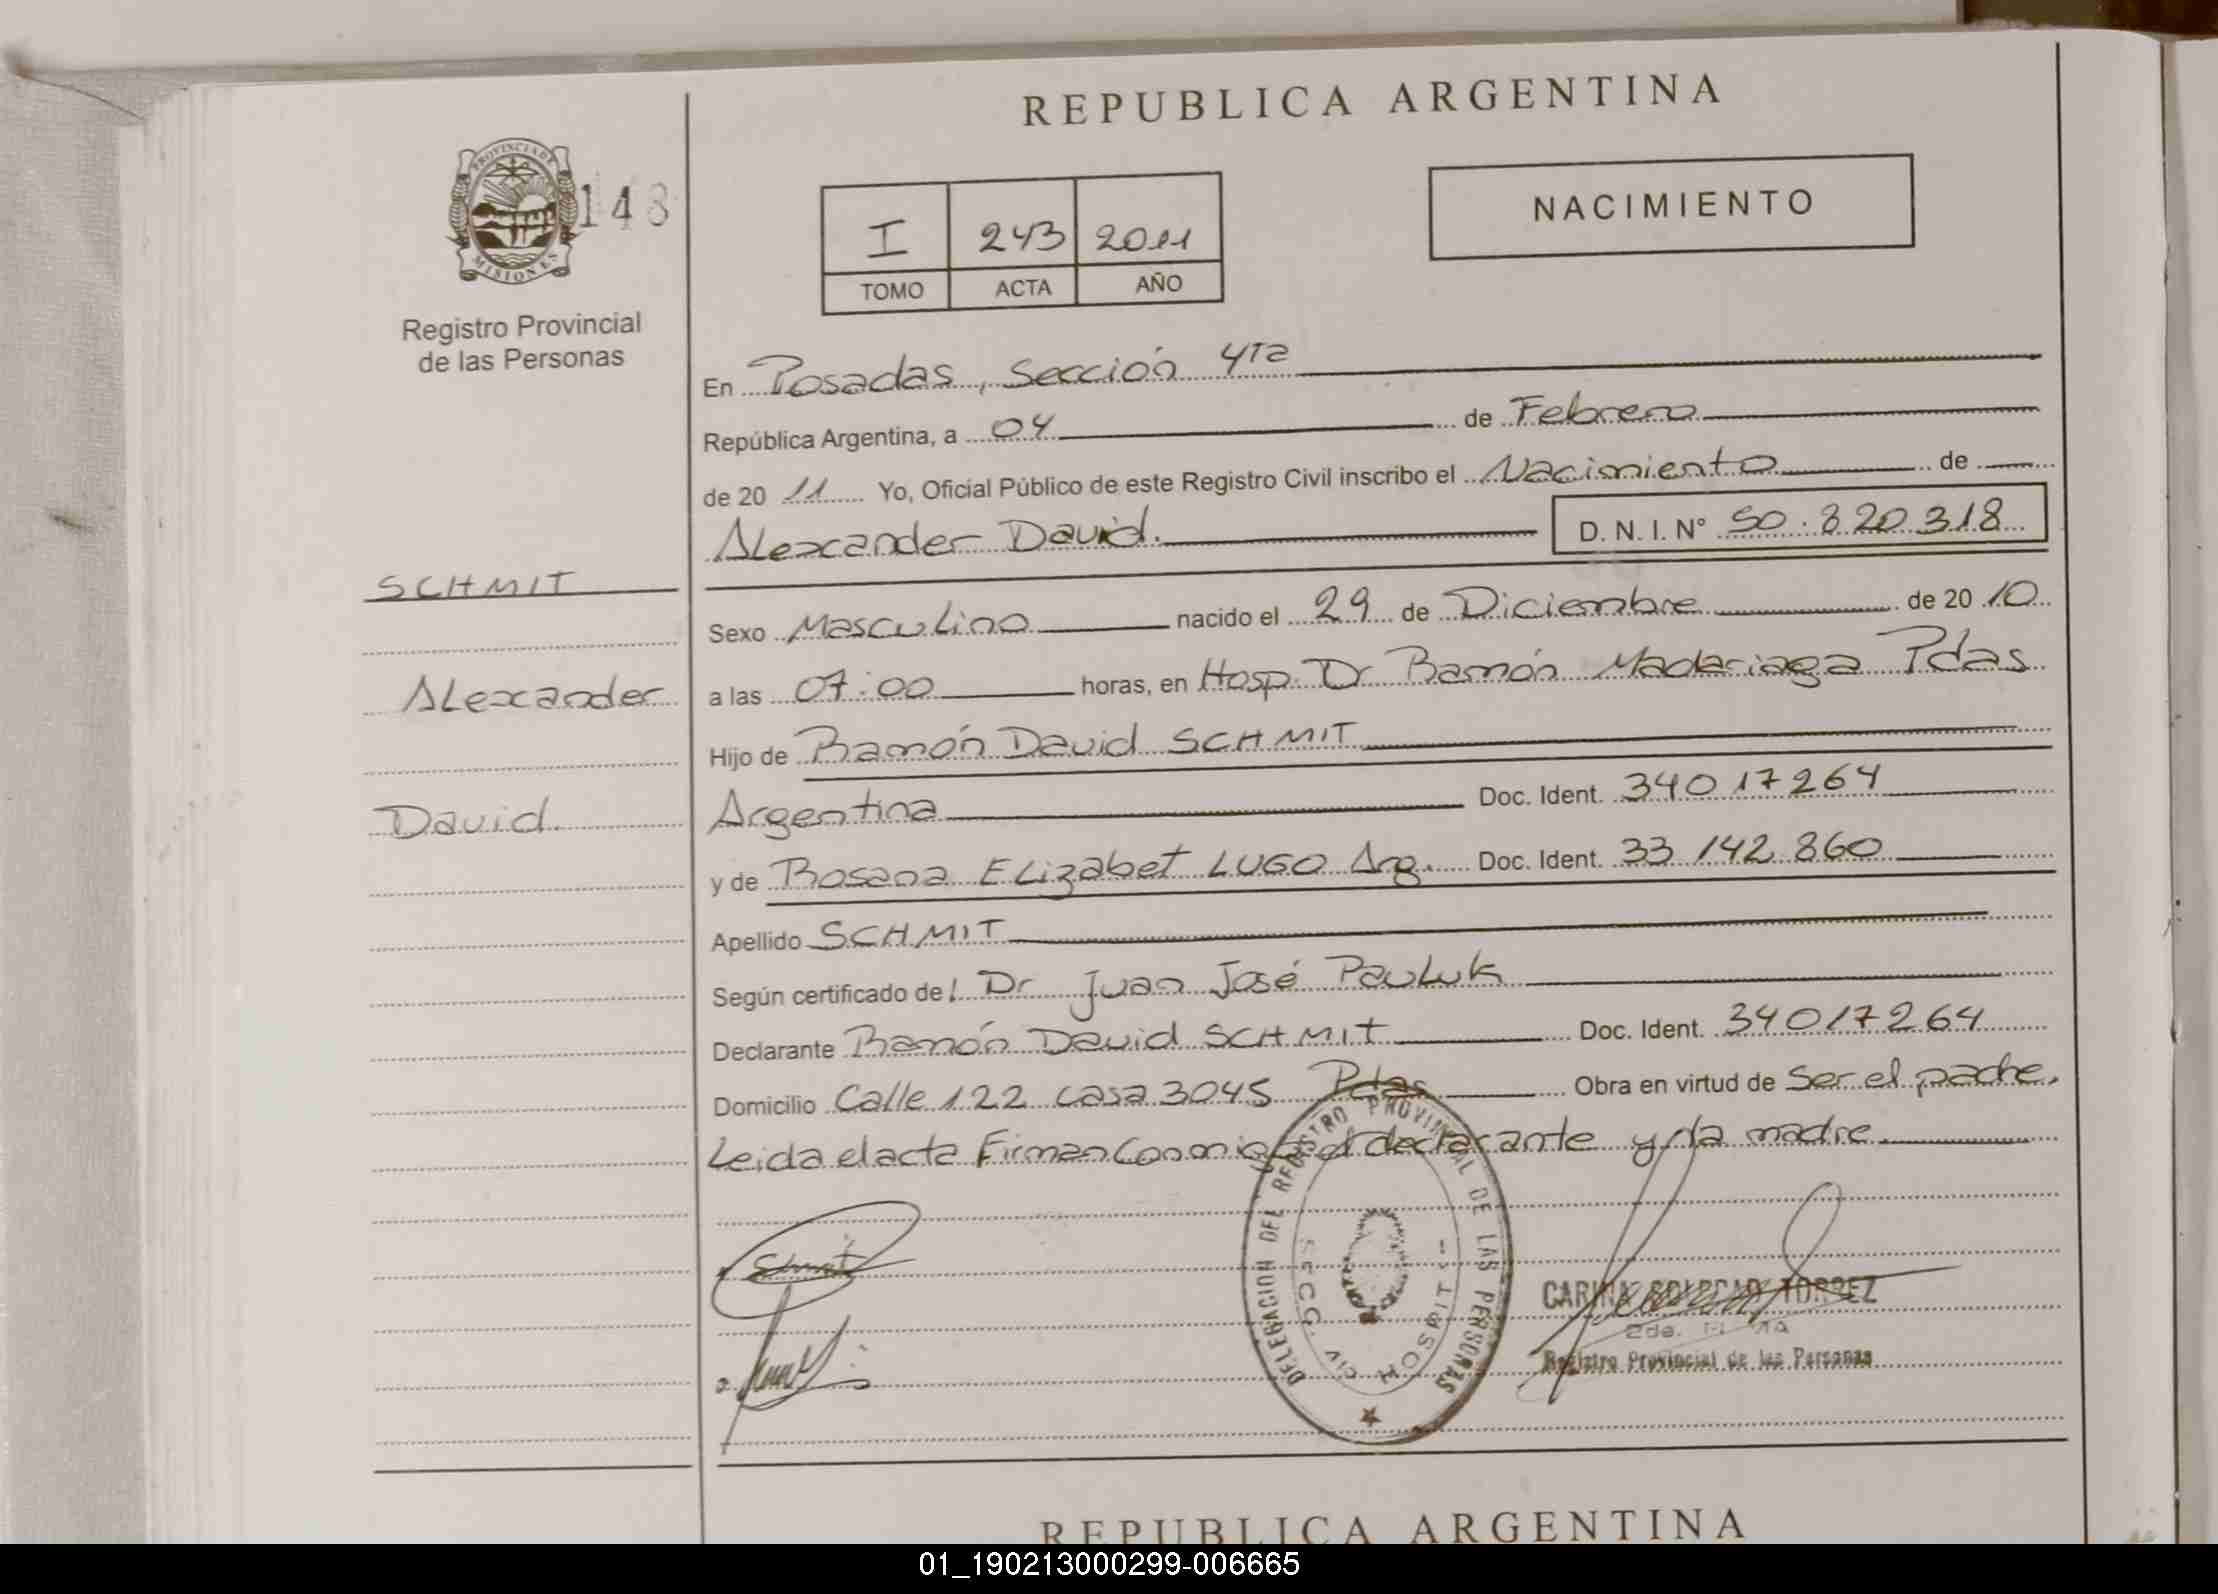 REPUBLICA ARGENTINA
PROVINCIA DE
MISIONES
148
Registro Provincial
de las Personas
I 243 2011
TOMO ACTA AÑO
NACIMIENTO
En Posadas, Sección 4ta
República Argentina, a 04 de Febrero
de 20 11 Yo, Oficial Público de este Registro Civil inscribo el Nacimiento de
Alexander David. D. N. I. N° 50.820.318
SCHMIT
Alexander
David.
Sexo Masculino nacido el 29 de Diciembre de 20 10
a las 07:00 horas, en Hosp. Dr Ramón Madariaga Pdas
Hijo de Ramón David SCHMIT
Argentina Doc. Ident. 34017264
y de Rosana Elizabet LUGO Arg. Doc. Ident. 33 142 860
Apellido SCHMIT
Según certificado de! Dr Juan José Pauluk
Declarante Ramón David SCHMIT Doc. Ident. 34017264
Domicilio Calle 122 casa 3045 Pdas Obra en virtud de Ser el padre,
Leida el acta Firman Conmigo el declarante y la madre
DELEGACION DEL REGISTRO PROVINCIAL DE LAS PERSONAS
SECC. CIV HOSPIT
Schmit
CARINA SOLEDAD TORREZ
2da.
Registro Provincial de las Personas
REPUBLICA ARGENTINA
01_190213000299-006665